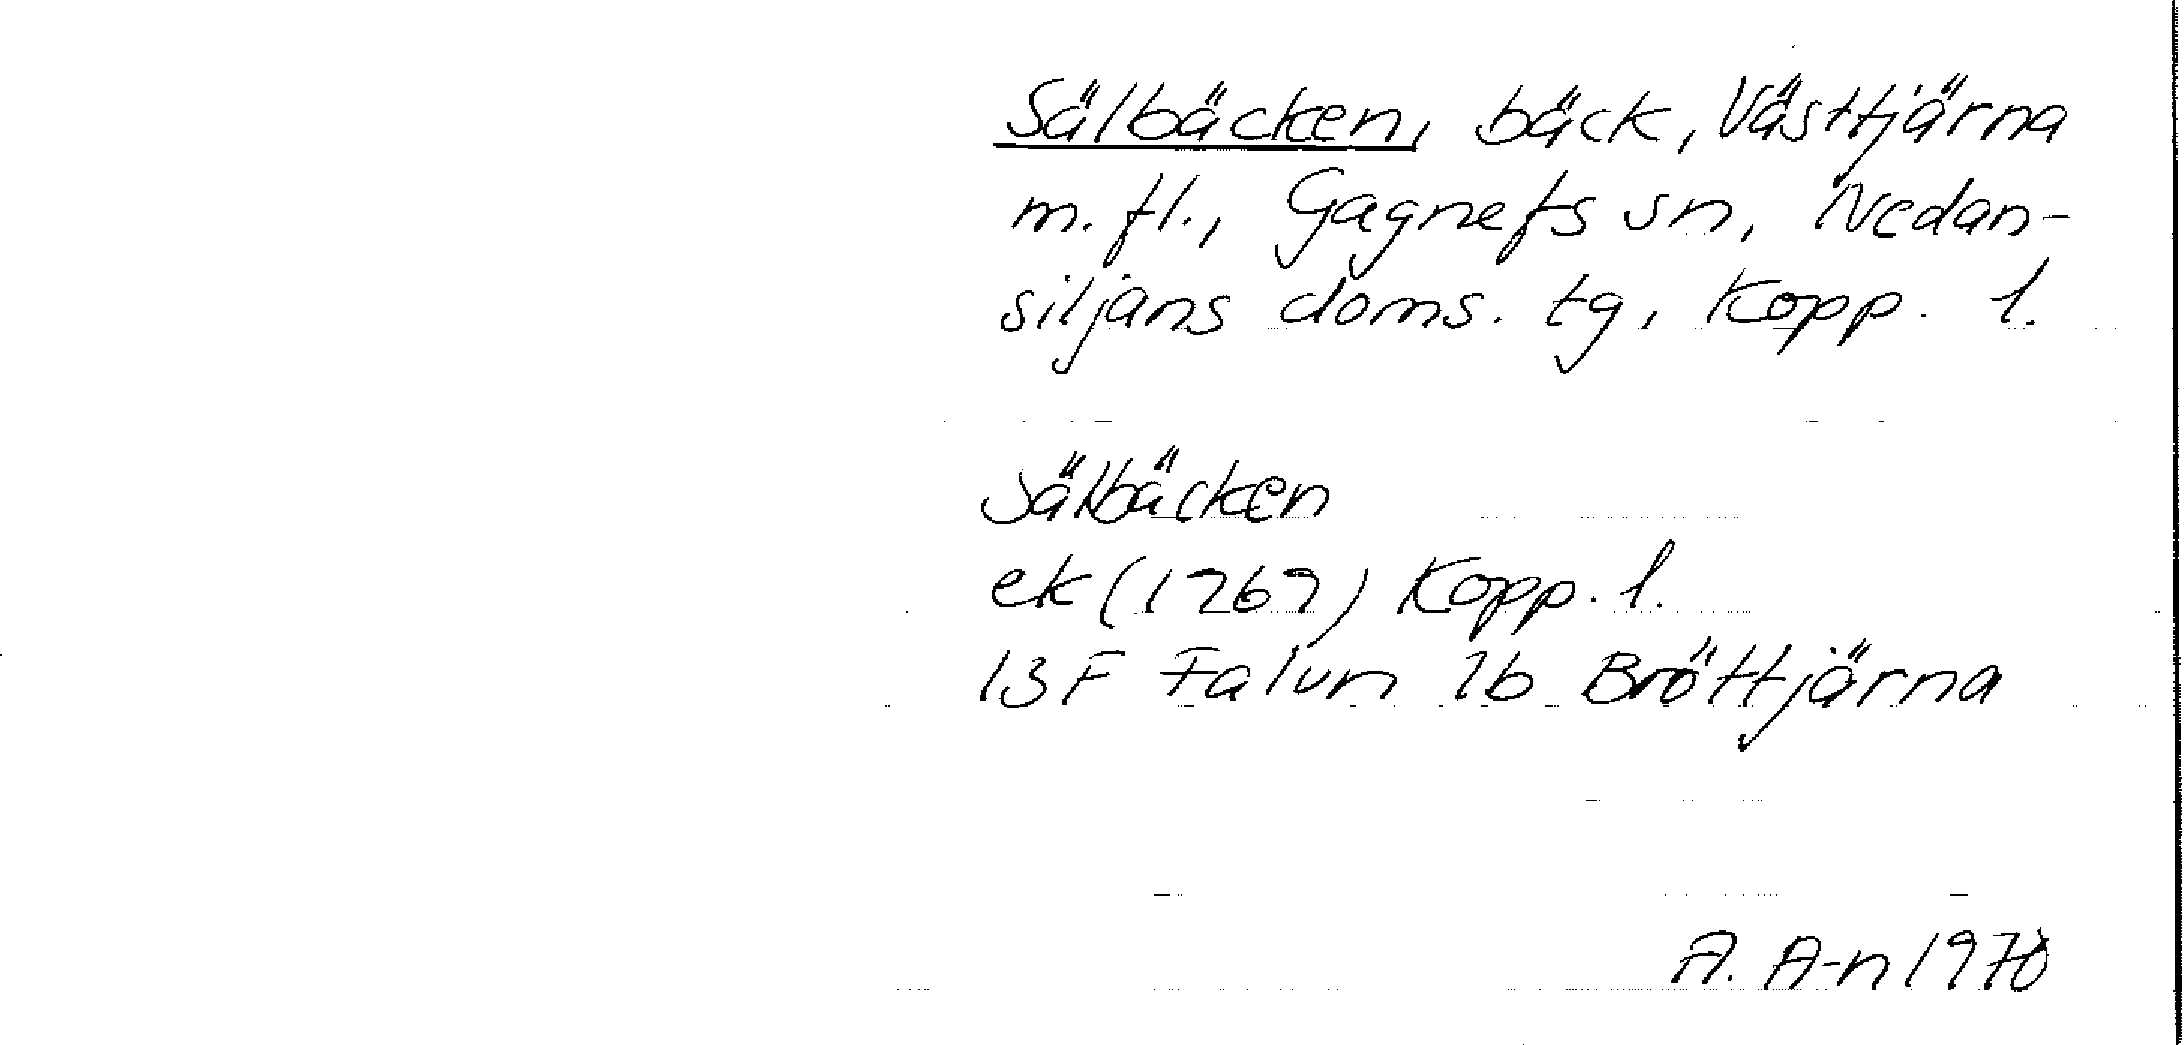 Sälbäcken, bäck, Västtjärna
m. fl., Gagnefs sn, Nedan-
siljans doms. tg, Kopp. l.
Sälbäcken
ek (1969) Kopp. l.
13F Falun 1b Bröttjärna
A. A-n 1970